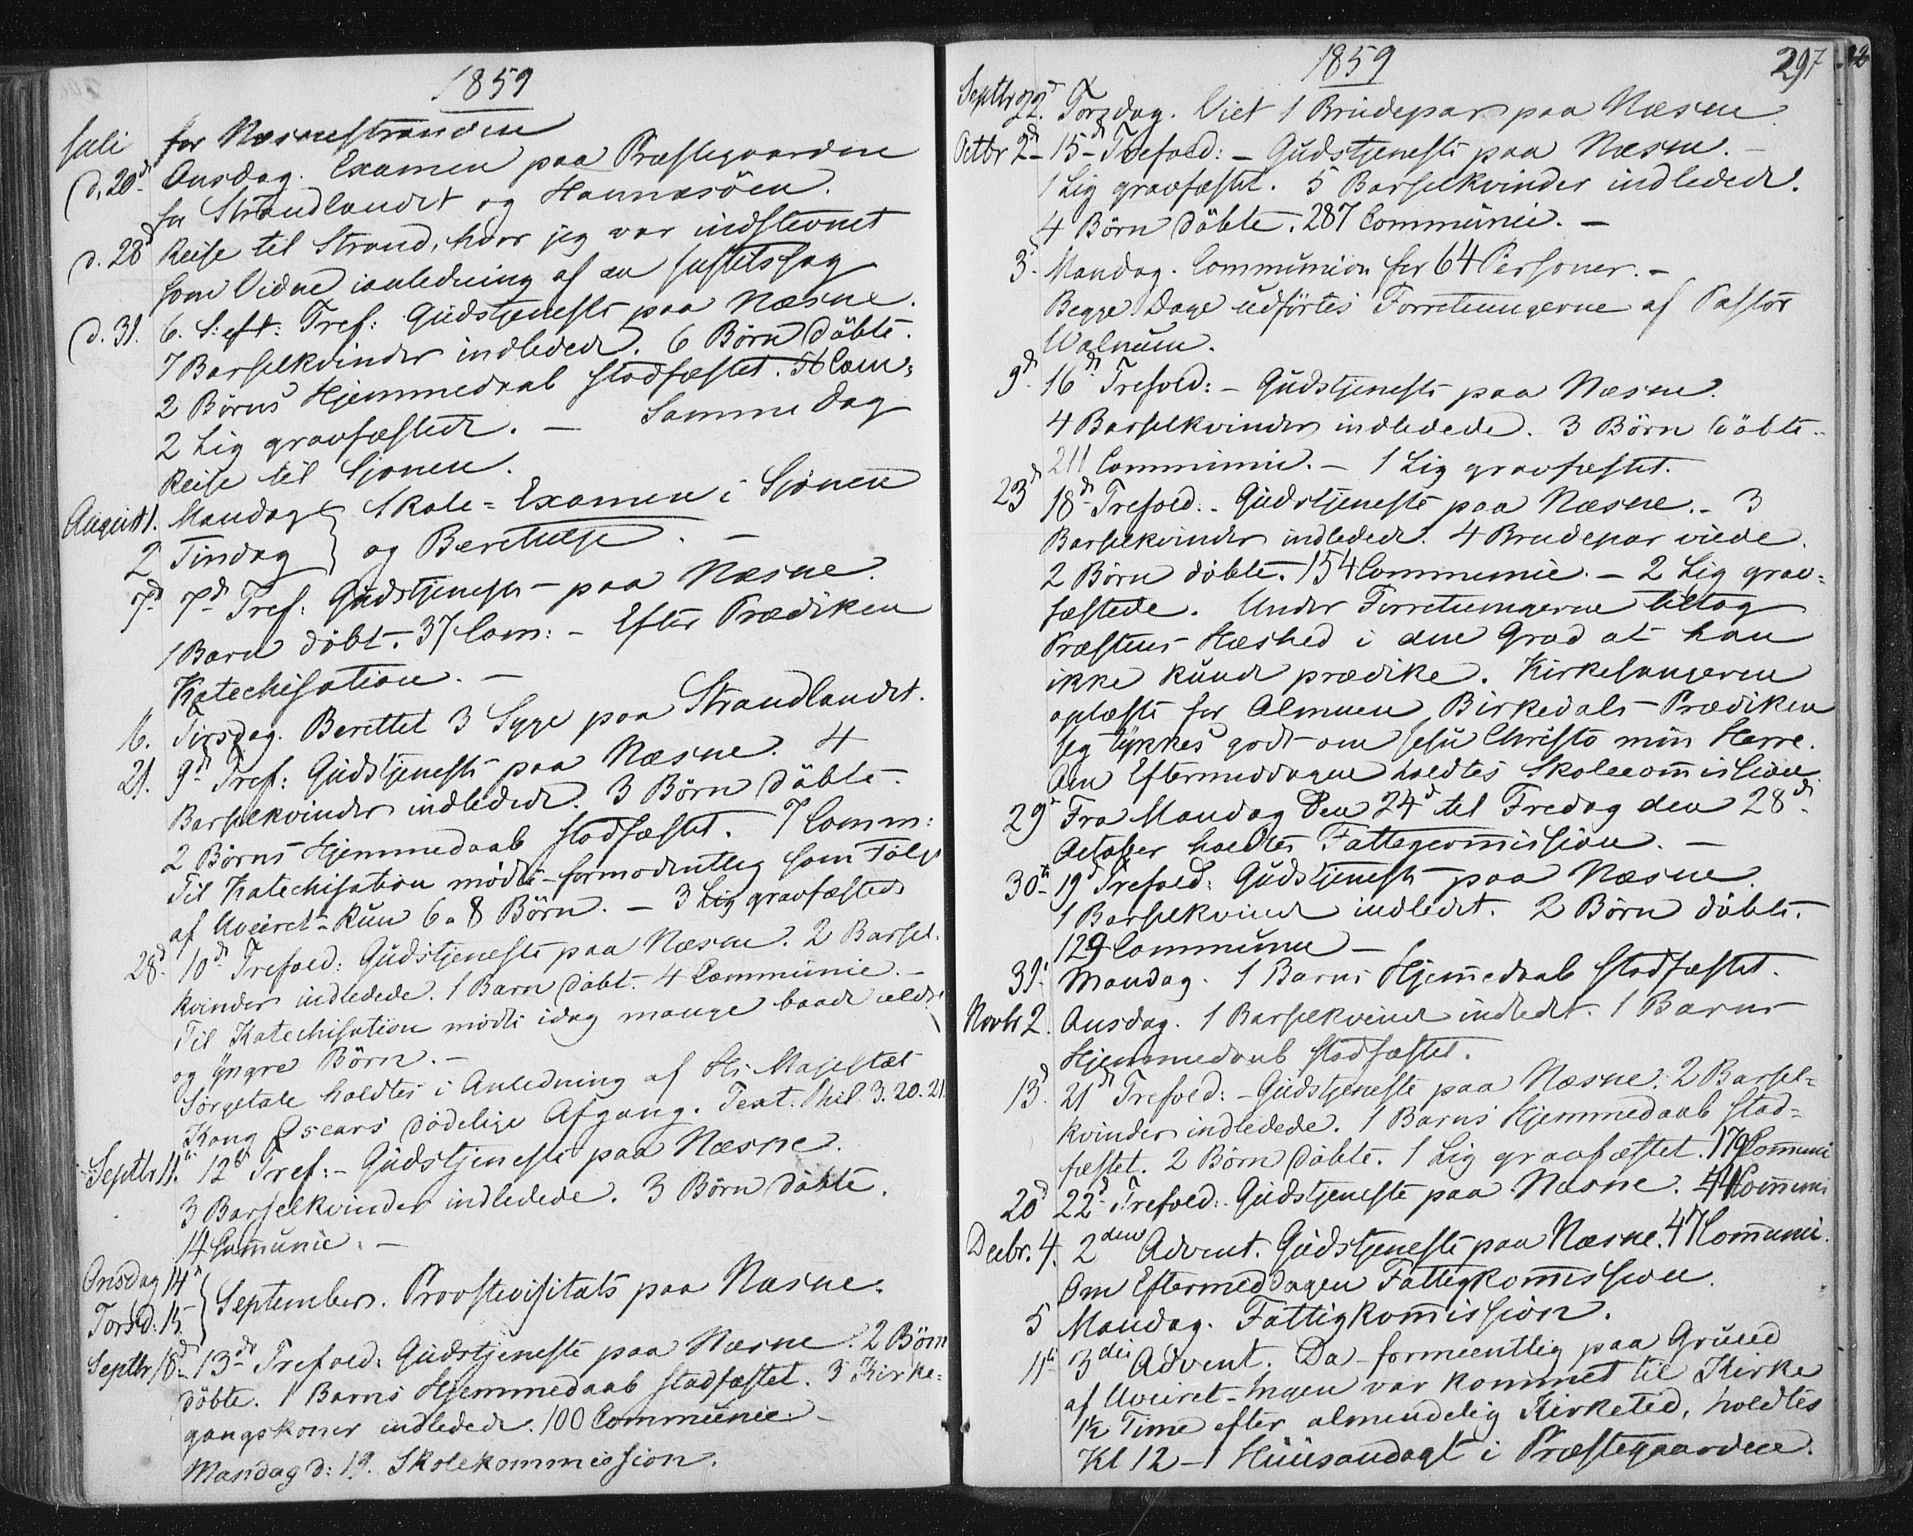 1859
Juli for Næsnestranden
d. 20d Onsdag. Examen paa Præstegaarden
for Strandlandet og Hannæsöen.
d. 28d Reise til Strand, hvor jeg var indstevnet
som Vidne i anledning af en Justitssag
d. 31. 6. S: eft: Tref: Gudstjeneste paa Næsne.
7 Barselkvinder indledede. 6 Börn döbte.
2 Börns Hjemmedaab stadfæstet. 56 Com:
2 Lig gravfæstede. — Samme Dag
Reise til Sjonen.
August 1. Mandag } Skole-Examen i Sjonen
2 Tirsdag } og Berettelse. —
7d 7d Tref: Gudstjeneste paa Næsne.
1 Barn döbt. 37 Com: — Efter Prædiken
Katechisation. —
16. Tirsdag. Berettet 3 Syge paa Strandlandet.
21. 9d Tref: Gudstjeneste paa Næsne. 4
Barselkvinder indledede. 3 Börn döbte.
2 Börns Hjemmedaab stadfæstet. 7 Comm:
Til Katechisation mödte – formodentlig som Fölge
af Uveiret – kun 6 a 8 Börn. — 3 Lig gravfæstede
28d. 10d Trefold: Gudstjeneste paa Næsne. 2 Barsel-
kvinder indledede. 1 Barn döbt. 4 Communic. —
Til Katechisation mödte idag mange baade ældre
og yngre Börn. —
Sörgetale holdtes i Anledning af Hs Majestæt
Kong Oscars dödelige Afgang. Text: Phil. 3. 20. 21.
Septbr 11. 12te Tref: – Gudstjeneste paa Næsne.
3 Barselkvinder indledede. 3 Börn döbte.
14 Communic. —
Onsdag 14d }
Torsd. 15 } September. Provstevisitats paa Næsne.
Septbr 18d – 13de Trefold: Gudstjeneste paa Næsne. 2 Börn
döbte. 1 Barns Hjemmedaab stadfæstet. 3 Kirke-
gangskoner indledede. 100 Communic. —
Mandag d: 19. Skolekommission.
1859 297
Septbr 22d. Torsdag. Viet 1 Brudepar paa Næsne.
Octbr 2d – 15d Trefold: – Gudstjeneste paa Næsne. —
1 Lig gravfæstet. 5 Barselkvinder indledede.
4 Börn döbte. 287 Communic. —
3d. Mandag. Communion for 64 Personer. —
Begge Dage udförtes Forretningerne af Pastor
Walnum.
9d. 16d Trefold: – Gudstjeneste paa Næsne.
4 Barselkvinder indledede. 3 Börn döbte.
211 Communic. — 1 Lig gravfæstet.
23d 18d Trefold. – Gudstjeneste paa Næsne. – 3
Barselkvinder indledede. 4 Brudepar viede.
2 Börn döbte. 154 Communic. — 2 Lig grav-
fæstede. Under Forretningerne tiltog
Præstens Hæshed i den Grad at han
ikke kunde prædike. Kirkesangeren
oplæste for Almuen Birkedals Prædiken
jeg tykkes godt om Jesu Christo min Herre.
Om Eftermiddagen holdtes Skolecommission.
29d Fra Mandag Den 24d til Fredag den 28d
October holdtes Fattigcommission. —
30te 19d Trefold: Gudstjeneste paa Næsne.
1 Barselkvinde indledet. 2 Börn döbte.
129 Communic —
31. Mandag. 1 Barns Hjemmedaab stadfæstet.
Novbr 2. Onsdag. 1 Barselkvinde indledet. 1 Barns
Hjemmedaab stadfæstet.
13d. 21d Trefold: – Gudstjeneste paa Næsne. 2 Barsel-
kvinder indledede. 1 Barns Hjemmedaab stad-
fæstet. 2 Börn döbte. 1 Lig gravfæstet. 179 Communi
20d 22d Trefold: Gudstjeneste paa Næsne. 44 Communi
Decbr. 4. 2den Advent. Gudstjeneste paa Næsne. 47 Communi.
Om Eftermeddagen Fattigkommission.
5 Mandag. Fattigkommission.
11te 3die Advent. Da – formeentlig paa Grund
af Uveiret – Ingen var kommet til Kirke
1½ Time efter almindelig Kirketid, holdtes
Kl 12–1 Huusandagt i Præstegaarden.